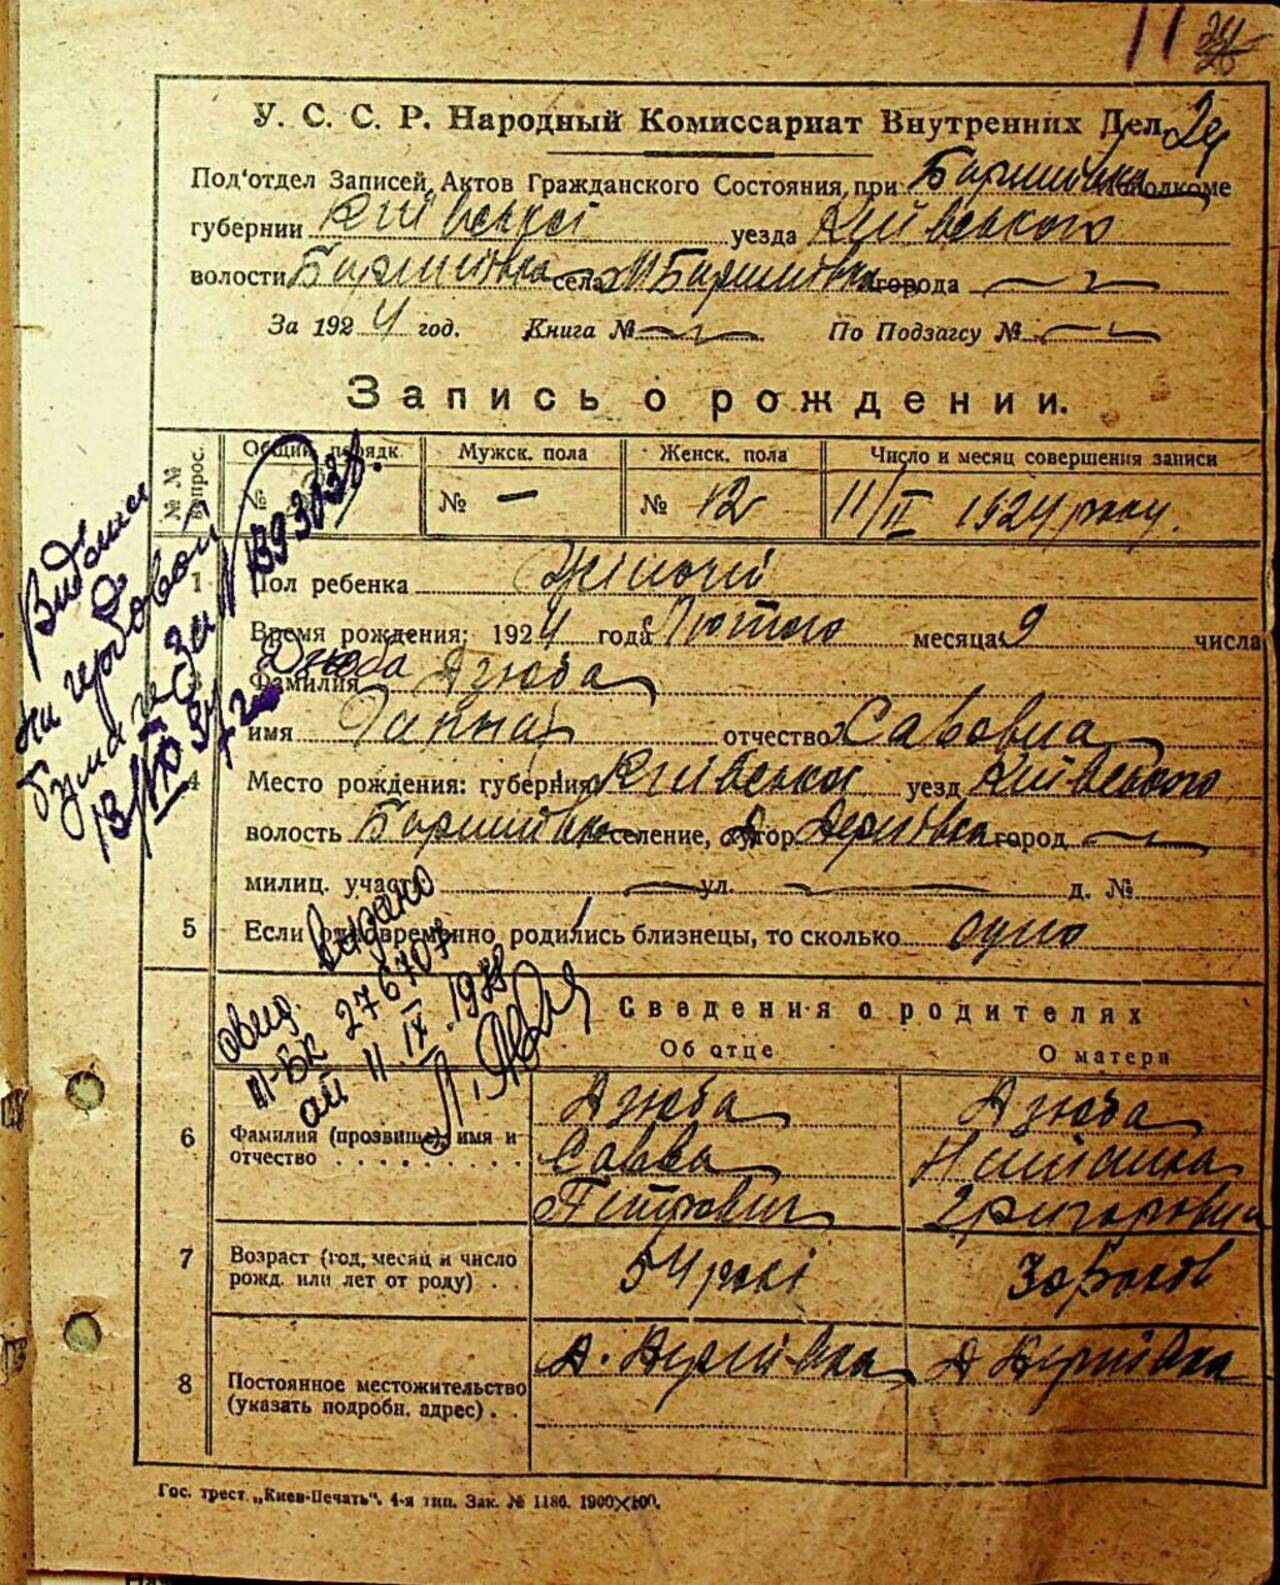 11
24
У. С. С. Р. Народный Комиссариат Внутренних Дел
Под'отдел Записей Актов Гражданского Состояния при Баришівка Исполкоме
губернии Київської уезда Київського
волости Баришівка села М Баришівка города
За 1924 год. Книга № По Подзагсу №
Запись о рождении.
№ № вопрос. Общий порядк. Мужск. пола Женск. пола Число и месяц совершения записи
№ № — № 12 11/II 1924 року.
1 Пол ребенка Жіночій
Время рождения: 1924 года Лютого месяца 9 числа
Дзюба
3 Фамилия Дзюба
имя Ганна отчество Савовна
4 Место рождения: губерния Київська уезд Київського
волость Баришівка селение, хутор Дернівка город
милиц. участ. ул. д. №
5 Если одновременно родились близнецы, то сколько одно
Сведения о родителях
Об отце О матери
6 Фамилия (прозвище), имя и отчество Дзюба Дзюба
Савва
Петрович Григоровна
7 Возраст (год, месяц и число рожд. или лет от роду) 54 роки 30 років
8 Постоянное местожительство (указать подробн. адрес) Д. Дернівка Д Дернівка
Гос. трест „Киев-Печать“. 4-я тип. Зак. № 1186. 1900×100.
на гербовой
бумаге за №
Видано
свид.
III-БК 276707
от 11.IX.1978